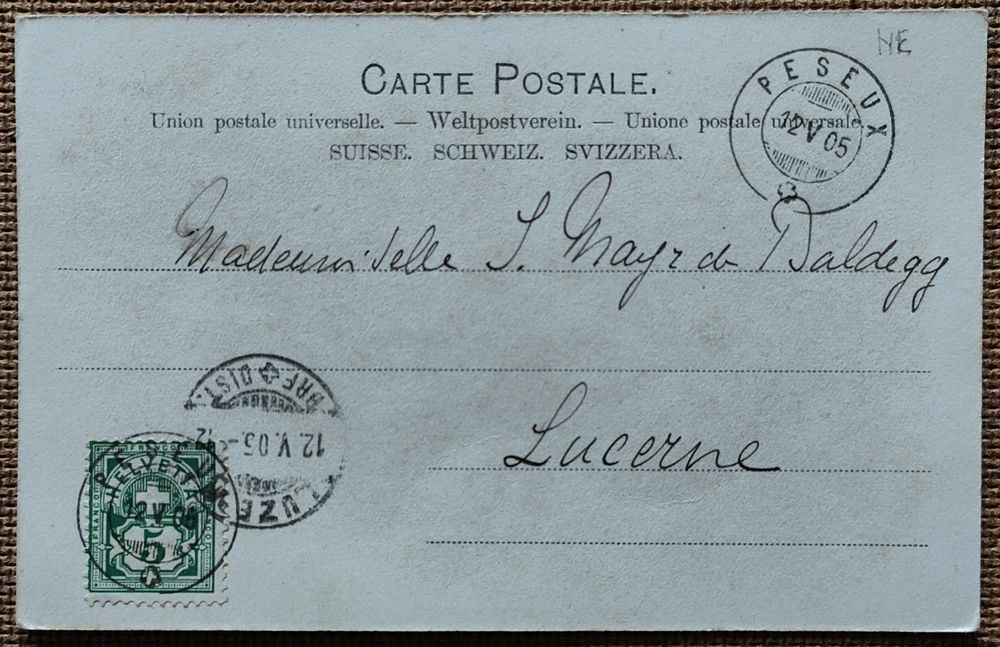 NE
CARTE POSTALE.
Union postale universelle. — Weltpostverein. — Unione postale universale.
SUISSE. SCHWEIZ. SVIZZERA.
PESEUX
12 V 05
Mademoiselle S. Mayr de Baldegg
Lucerne
BRF DIST
12.V.05.-12
LUZE
PESEUX
12 V 05
FRANCO
HELVETIA
FRANCO
5